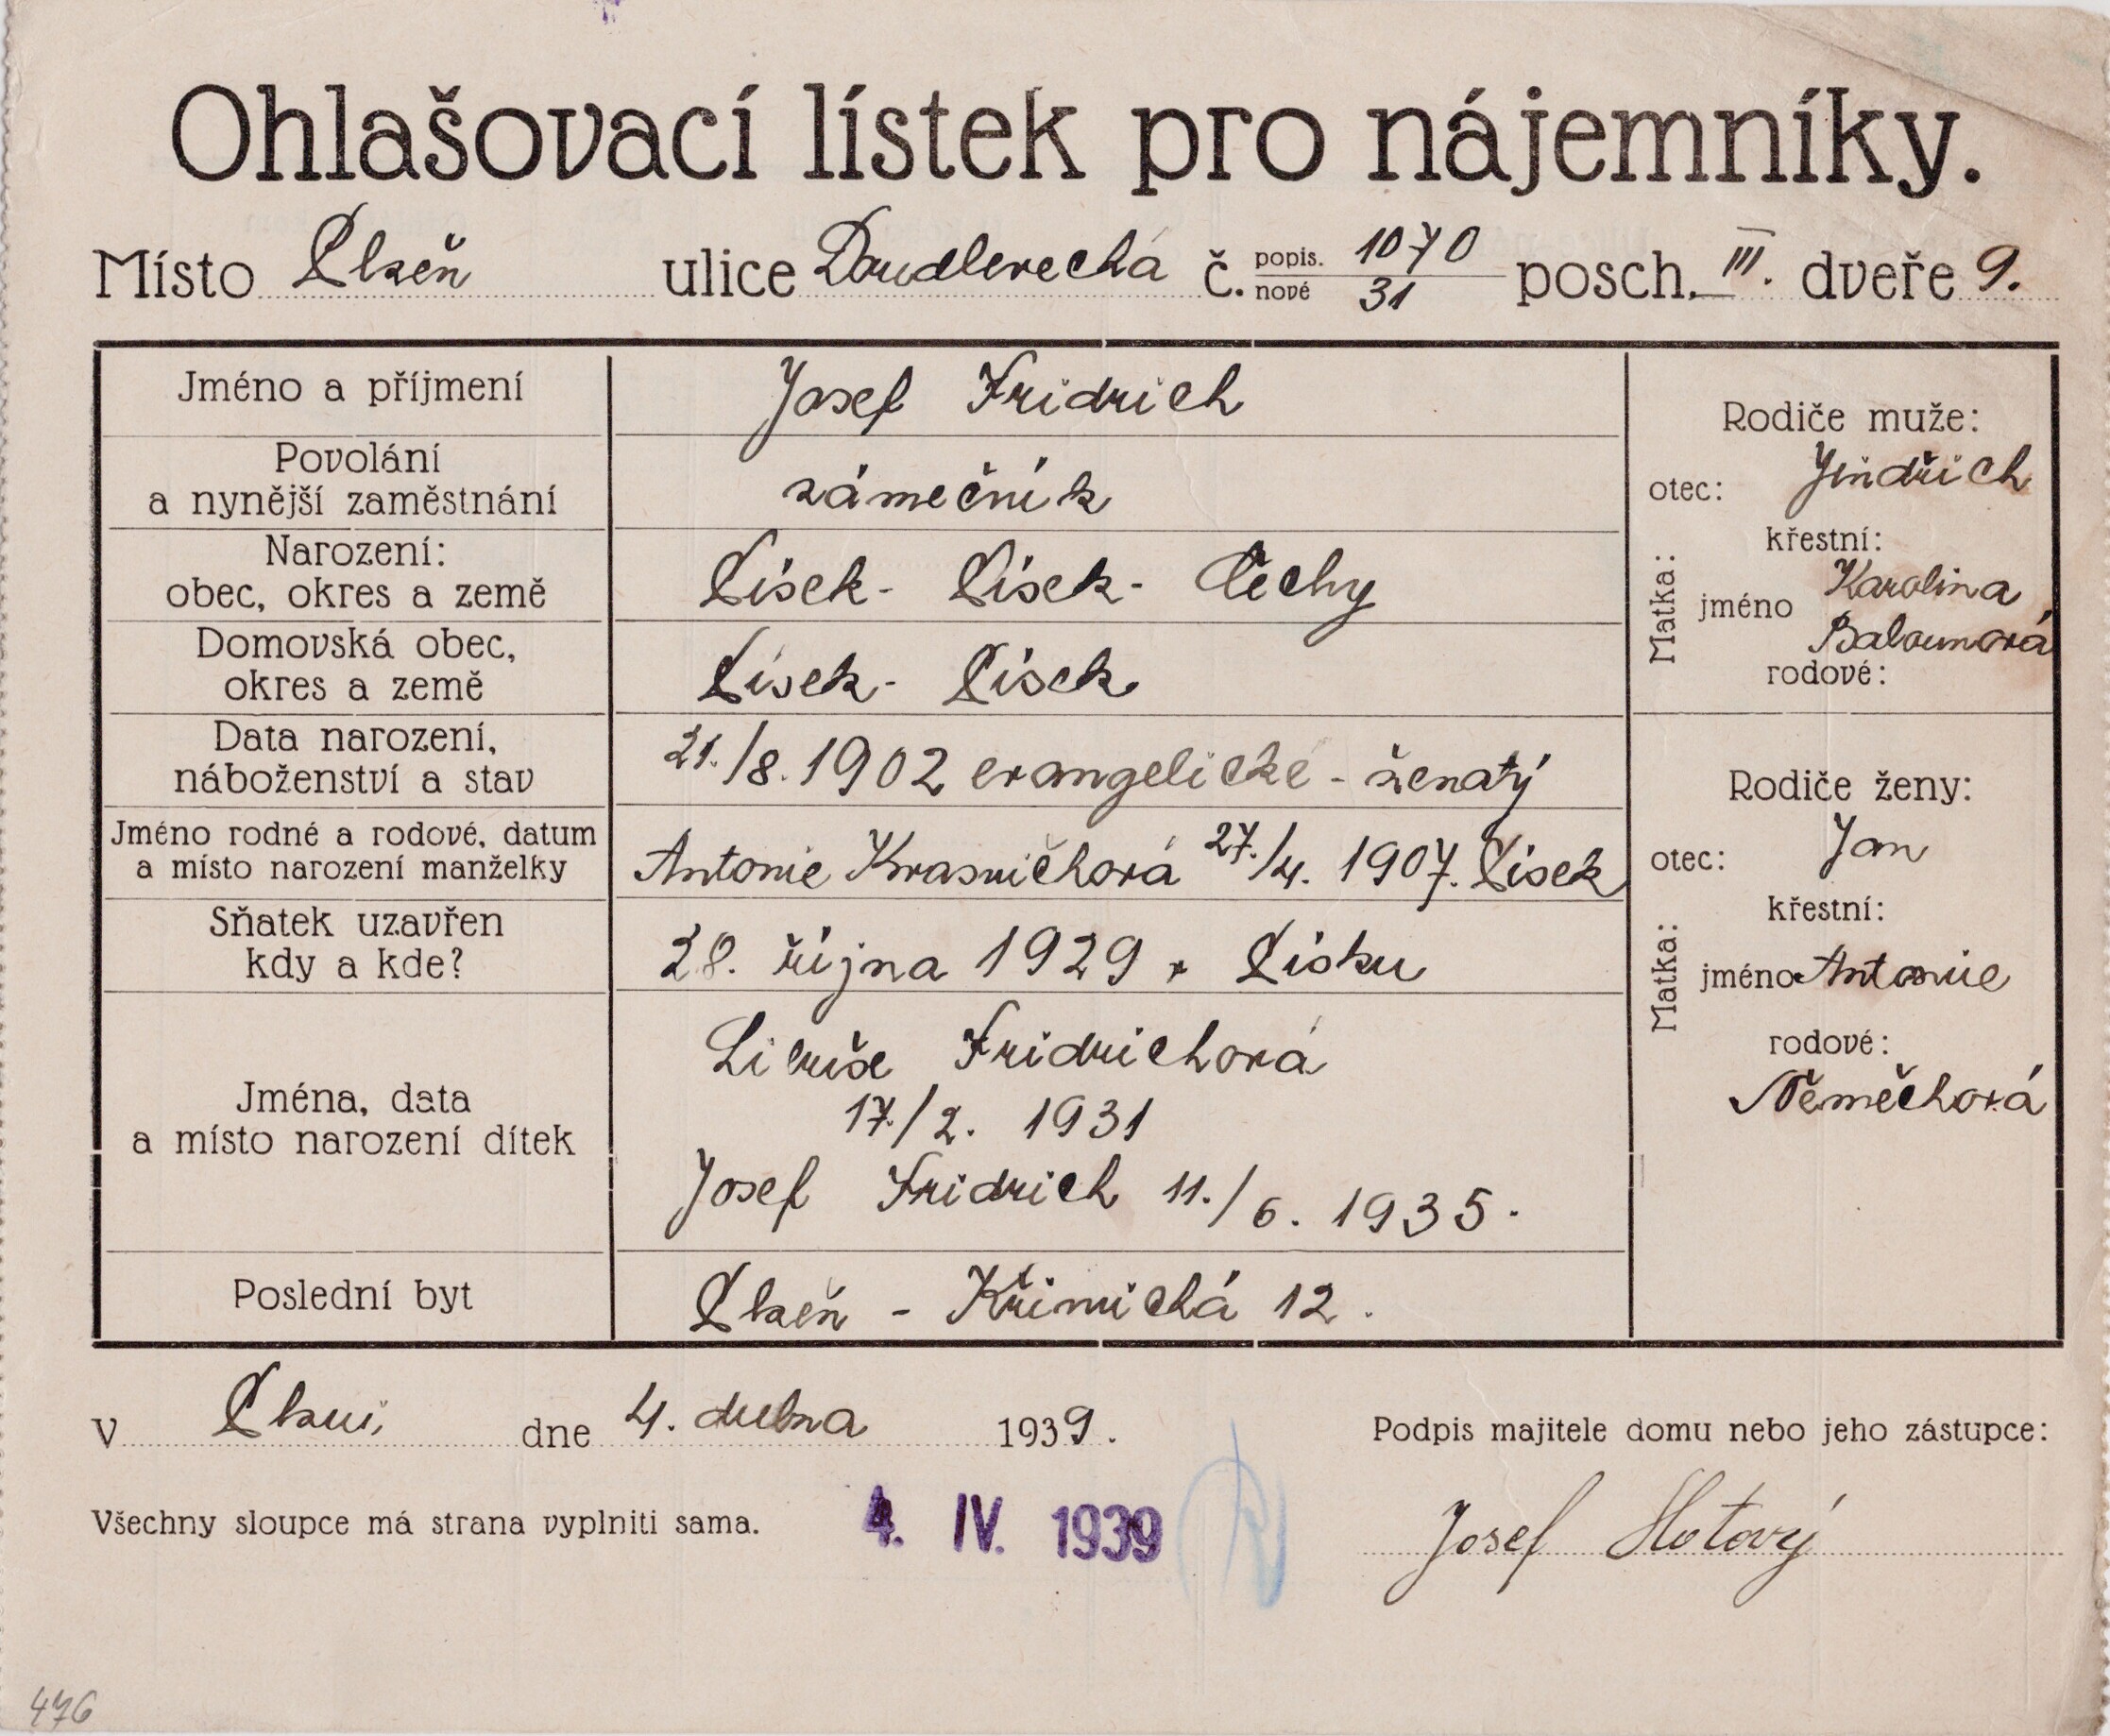 Ohlašovací lístek pro nájemníky.
Místo Plzeň ulice Doudlevecká č. popis. 1070 nové 31 posch. III. dveře 9.
Jméno a příjmení Josef Fridrich
Povolání a nynější zaměstnání zámečník
Narození: obec, okres a země Písek - Písek - Čechy
Domovská obec, okres a země Písek - Písek
Data narození, náboženství a stav 21./8. 1902 evangelické - ženatý
Jméno rodné a rodové, datum a místo narození manželky Antonie 27./4. 1907. Písek
Sňatek uzavřen kdy a kde? 28. října 1929 v Písku
Jména, data a místo narození dítek
Libuše Fridrichová
17./2. 1931
Josef Fridrich 11./6. 1935.
Poslední byt Plzeň - Křimická 12.
Rodiče muže:
otec: Jindřich
Matka:
křestní:
jméno Karolina
Balounová
rodové:
Rodiče ženy:
otec: Jan
Matka:
křestní:
jméno Antonie
rodové:
Němečková
V Plzni, dne 4. dubna 1939.
Podpis majitele domu nebo jeho zástupce:
Všechny sloupce má strana vyplniti sama.
4. IV. 1939
Josef Hotový
476